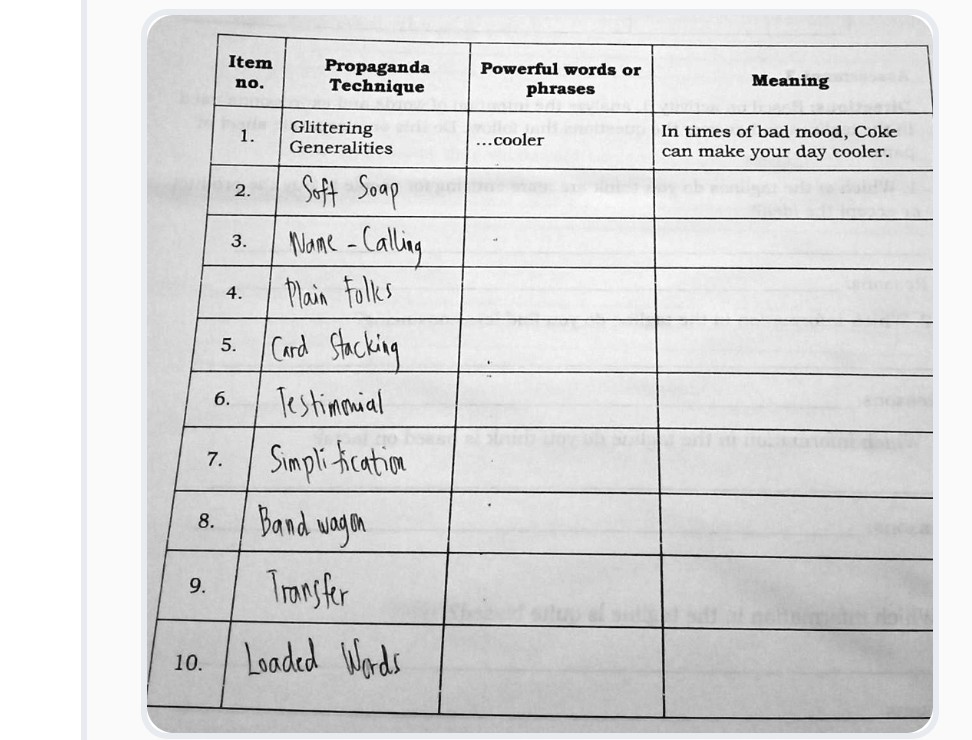 Item no.
Propaganda Technique
Powerful words or phrases
Meaning
1.
Glittering Generalities
...cooler
In times of bad mood, Coke
can make your day cooler.
2.
Soft Soap
3.
Name - Calling
4.
Plain Folks
5.
Card Stacking
6.
Testimonial
7.
Simplification
8.
Band wagon
9.
Transfer
10.
Loaded Words